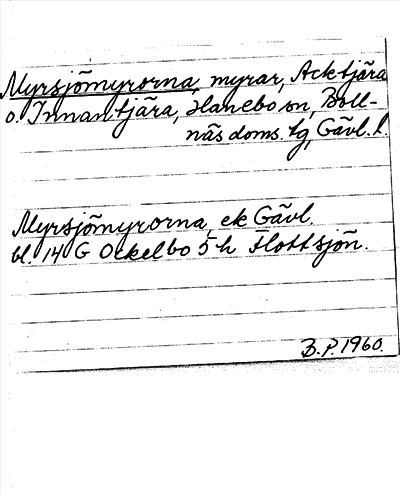 Myrsjömyrorna, myrar, Acktjära
o. Innantjära, Hanebo sn, Boll-
näs doms. tg, Gävl. l.
Myrsjömyrorna, ek Gävl.
bl. 14 G Ockelbo 5 h Flottsjön.
B. P. 1960.